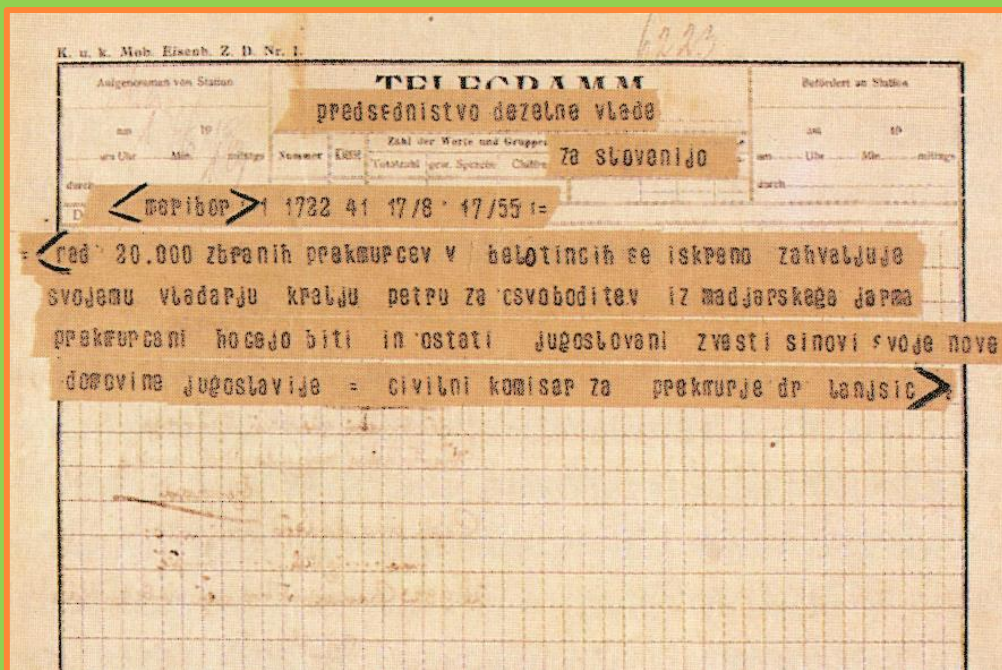 6223
K. u. k. Mob. Eisenb. Z. D. Nr. 1.
Aufgenommen von Station
TELEGRAMM
Befördert an Station
predsednistvo dezelne vlade
am 19
am 19
Zahl der Worte und Gruppen
za slovenijo
um Uhr Min. mittags
Nummer
Klasse
Totalzahl gew. Sprache Chiffre
um Uhr Min. mittags
durch
durch
< maribor > 1 1722 41 17/8 17/55 =
= < rad 20.000 zbranih prekmurcev v belotincih se iskreno zahvaljuje
svojemu vladarju kralju petru za osvoboditev iz madjarskega jarma
prekmurcani hocejo biti in ostati jugoslovani zvesti sinovi svoje nove
domovine jugoslavije = civilni komisar za prekmurje dr lanjsic >